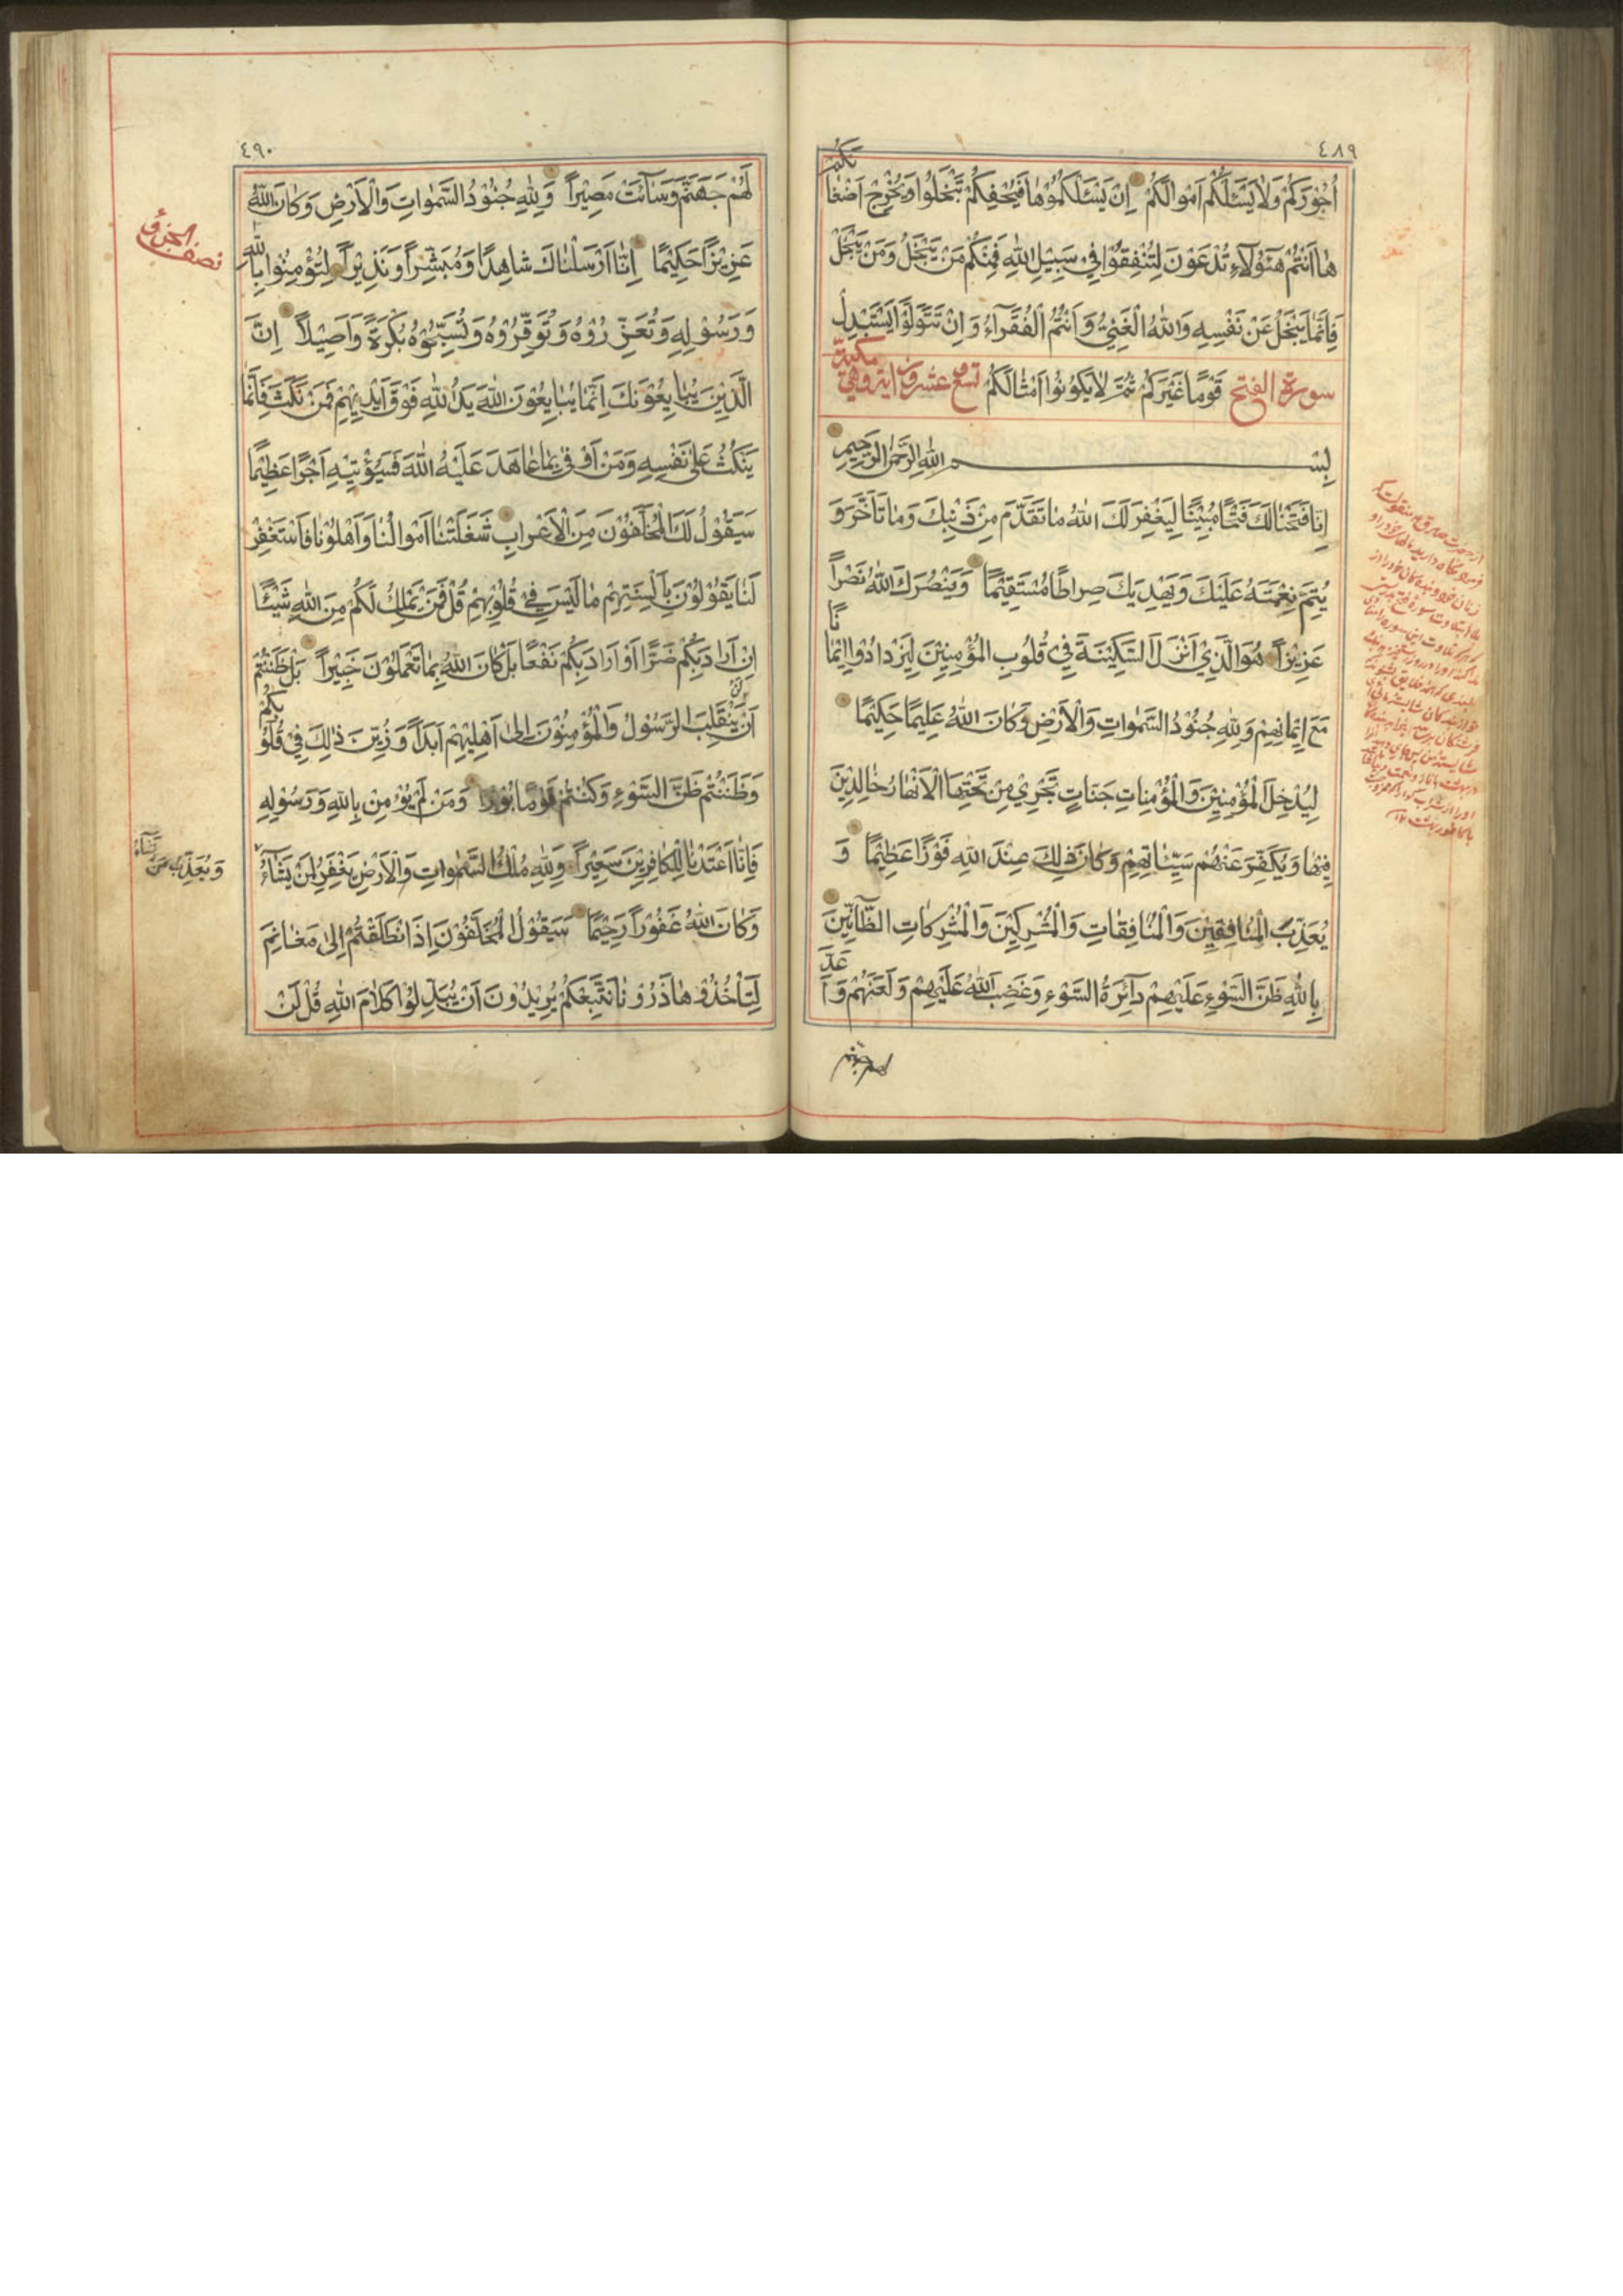 ٤٨٩
اُجُوْرَكُمْ وَلَا يَسْـَٔلْكُمْ اَمْوالَكُمْ اِنْ يَسْـَٔلْكُمُوْهَا فَيُحْفِكُمْ تَبْخَلُوا وَيُخْرِجْ اَضْغَا
نَكُمْ
هَا اَنْتُمْ هٰؤُلَاءِ تُدْعَوْنَ لِتُنْفِقُوْا فِيْ سَبِيْلِ اللهِ فَمِنْكُمْ مَنْ يَبْخَلُ وَمَنْ يَبْخَلْ
فَاِنَّمَا يَبْخَلُ عَنْ نَفْسِهِ وَاللهُ الْغَنِيُّ وَاَنْتُمُ الْفُقَرَاءُ وَاِنْ تَتَوَلَّوْا يَسْتَبْدِلْ
سورة الفتح قَوْمًا غَيْرَكُمْ ثُمَّ لَا يَكُوْنُوْا اَمْثَالَكُمْ تسع عشرون اية وهي
مكية
بِسْمِ اللهِ الرَّحْمٰنِ الرَّحِيْمِ
اِنَّا فَتَحْنَا لَكَ فَتْحًا مُبِيْنًا لِيَغْفِرَ لَكَ اللهُ مَا تَقَدَّمَ مِنْ ذَنْبِكَ وَمَا تَاَخَّرَ وَ
يُتِمَّ نِعْمَتَهُ عَلَيْكَ وَيَهْدِيَكَ صِرَاطًا مُسْتَقِيْمًا وَيَنْصُرَكَ اللهُ نَصْراً
عَزِيْزاً هُوَ الَّذِيْ اَنْزَلَ السَّكِيْنَةَ فِيْ قُلُوْبِ الْمُؤْمِنِيْنَ لِيَزْدَادُوْا اِيْمَا
نًا
مَعَ اِيْمَانِهِمْ وَلِلهِ جُنُوْدُ السَّمٰوَاتِ وَالْاَرْضِ وَكَانَ اللهُ عَلِيْمًا حَكِيْمًا
لِيُدْخِلَ الْمُؤْمِنِيْنَ وَالْمُؤْمِنَاتِ جَنَّاتٍ تَجْرِيْ مِنْ تَحْتِهَا الْاَنْهَارُ خَالِدِيْنَ
فِيْهَا وَيُكَفِّرَ عَنْهُمْ سَيِّئَاتِهِمْ وَكَانَ ذٰلِكَ عِنْدَ اللهِ فَوْزًا عَظِيْمًا وَ
يُعَذِّبَ الْمُنَافِقِيْنَ وَالْمُنَافِقَاتِ وَالْمُشْرِكِيْنَ وَالْمُشْرِكَاتِ الظَّانِّيْنَ
بِاللهِ ظَنَّ السَّوْءِ عَلَيْهِمْ دَائِرَةُ السَّوْءِ وَغَضِبَ اللهُ عَلَيْهِمْ وَلَعَنَهُمْ وَاَ
عَدَّ
لهم جهنم
٤٩٠
لَهُمْ جَهَنَّمَ وَسَائَتْ مَصِيْراً وَلِلهِ جُنُوْدُ السَّمٰوَاتِ وَالْاَرْضِ وَكَانَ اللهُ
عَزِيْزًا حَكِيْمًا اِنَّا اَرْسَلْنَاكَ شَاهِدًا وَمُبَشِّراً وَنَذِيْراً لِتُؤْمِنُوْا بِاللهِ
وَرَسُوْلِهِ وَتُعَزِّرُوْهُ وَتُوَقِّرُوْهُ وَتُسَبِّحُوْهُ بُكْرَةً وَاَصِيْلاً اِنَّ
الَّذِيْنَ يُبَايِعُوْنَكَ اِنَّمَا يُبَايِعُوْنَ اللهَ يَدُ اللهِ فَوْقَ اَيْدِيْهِمْ فَمَنْ نَكَثَ فَاِنَّمَا
يَنْكُثُ عَلٰى نَفْسِهِ وَمَنْ اَوْفٰى بِمَا عَاهَدَ عَلَيْهُ اللهَ فَسَيُؤْتِيْهِ اَجْرًا عَظِيْمًا
سَيَقُوْلُ لَكَ الْمُخَلَّفُوْنَ مِنَ الْاَعْرَابِ شَغَلَتْنَا اَمْوالُنَا وَاَهْلُوْنَا فَاسْتَغْفِرْ
لَنَا يَقُوْلُوْنَ بِاَلْسِنَتِهِمْ مَا لَيْسَ فِيْ قُلُوْبِهِمْ قُلْ فَمَنْ يَمْلِكُ لَكُمْ مِنَ اللهِ شَيْئًا
اِنْ اَرَادَ بِكُمْ ضَرًّا اَوْ اَرَادَ بِكُمْ نَفْعًا بَلْ كَانَ اللهُ بِمَا تَعْمَلُوْنَ خَبِيْراً بَلْ ظَنَنْتُمْ
اَنْ لَنْ يَنْقَلِبَ الرَّسُوْلُ وَالْمُؤْمِنُوْنَ اِلٰى اَهْلِيْهِمْ اَبَداً وَزُيِّنَ ذٰلِكَ فِيْ قُلُوْ
بِكُمْ
وَظَنَنْتُمْ ظَنَّ السَّوْءِ وَكُنْتُمْ قَوْمًا بُوْرًا وَمَنْ لَمْ يُؤْمِنْ بِاللهِ وَرَسُوْلِهِ
فَاِنَّا اَعْتَدْنَا لِلْكَافِرِيْنَ سَعِيْراً وَلِلهِ مُلْكُ السَّمٰوَاتِ وَالْاَرْضِ يَغْفِرُ لِمَنْ يَشَاءُ
وَكَانَ اللهُ غَفُوْراً رَحِيْمًا سَيَقُوْلُ الْمُخَلَّفُوْنَ اِذَا انْطَلَقْتُمْ اِلٰى مَغَانِمَ
لِتَاْخُذُوْهَا ذَرُوْنَا نَتَّبِعْكُمْ يُرِيْدُوْنَ اَنْ يُبَدِّلُوْا كَلَامَ اللهِ قُلْ لَنْ
نصف الجزؤ
وَيُعَذِّبُ مَنْ
يَشَاءُ